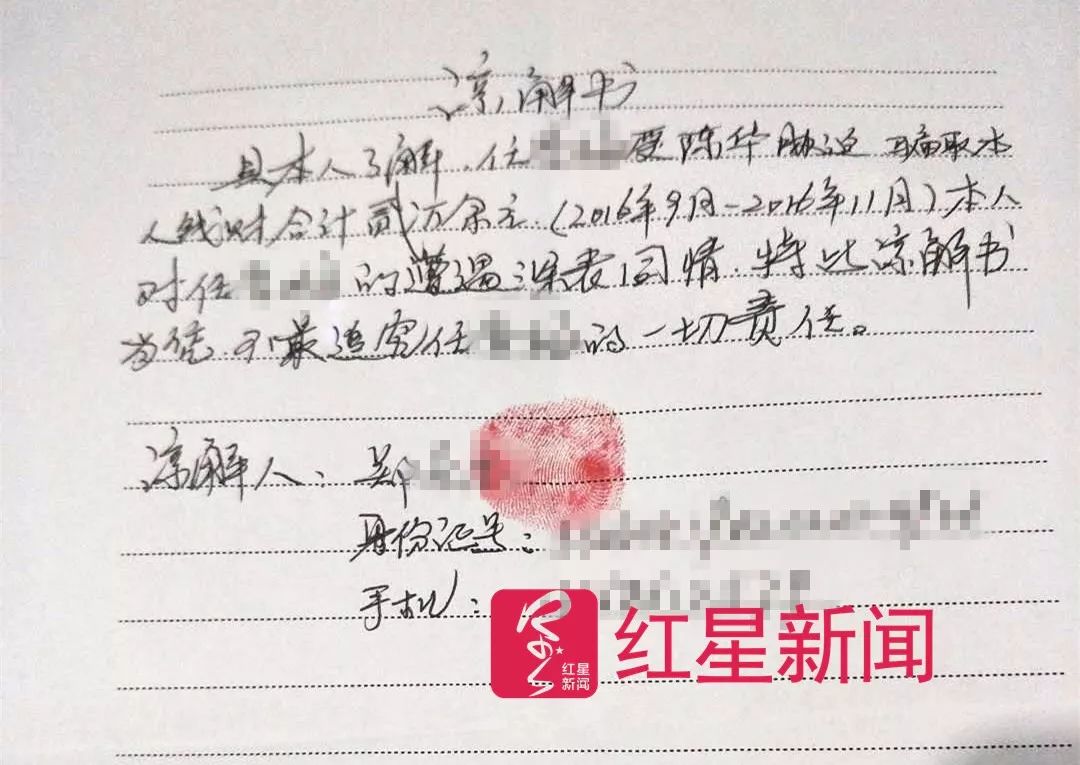 凉解书
具本人了解.任 受陈华胁迫 骗取本
人钱财合计贰万余元.(2016年9月-2016年11月)本人
对任 的遭遇深表同情.特此凉解书
为凭.不在追究任 的一切责任。
凉解人: 郑
身份证号:
手机:
红星
新闻
红星新闻